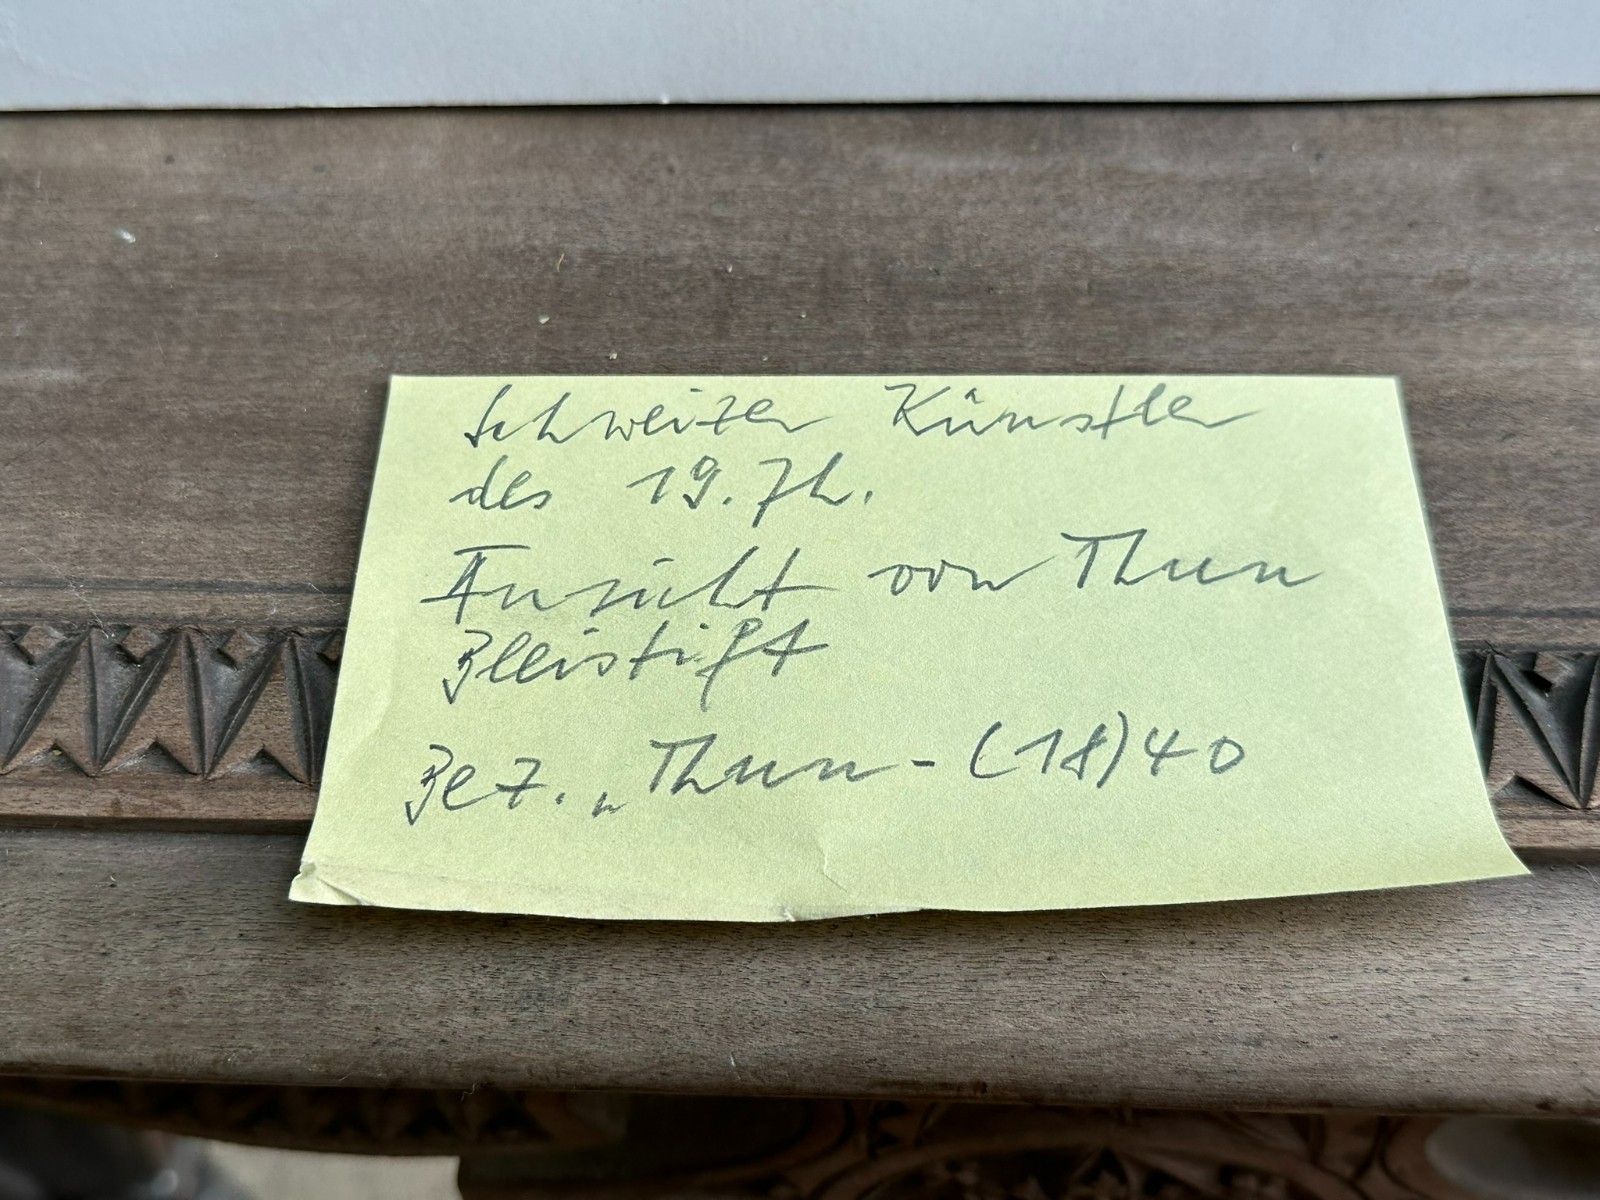 Schweizer Künstler
des 19. Jh.
Ansicht von Thun
Bleistift
Bez. „Thun - (18)40